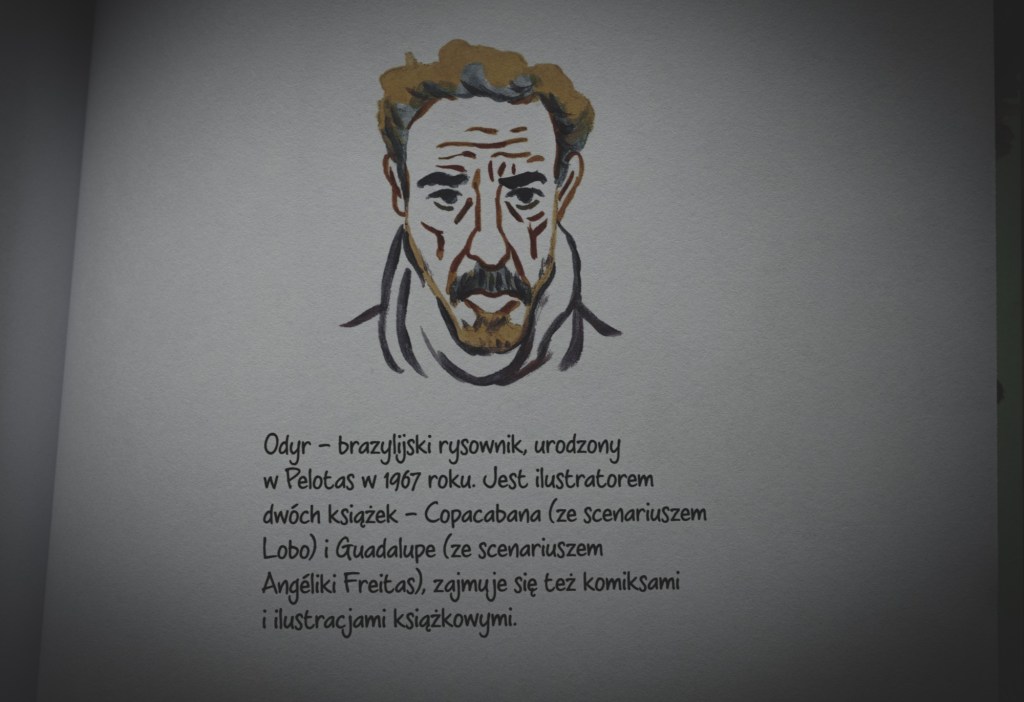 Odyr – brazylijski rysownik, urodzony
w Pelotas w 1967 roku. Jest ilustratorem
dwóch książek – Copacabana (ze scenariuszem
Lobo) i Guadalupe (ze scenariuszem
Angéliki Freitas), zajmuje się też komiksami
i ilustracjami książkowymi.